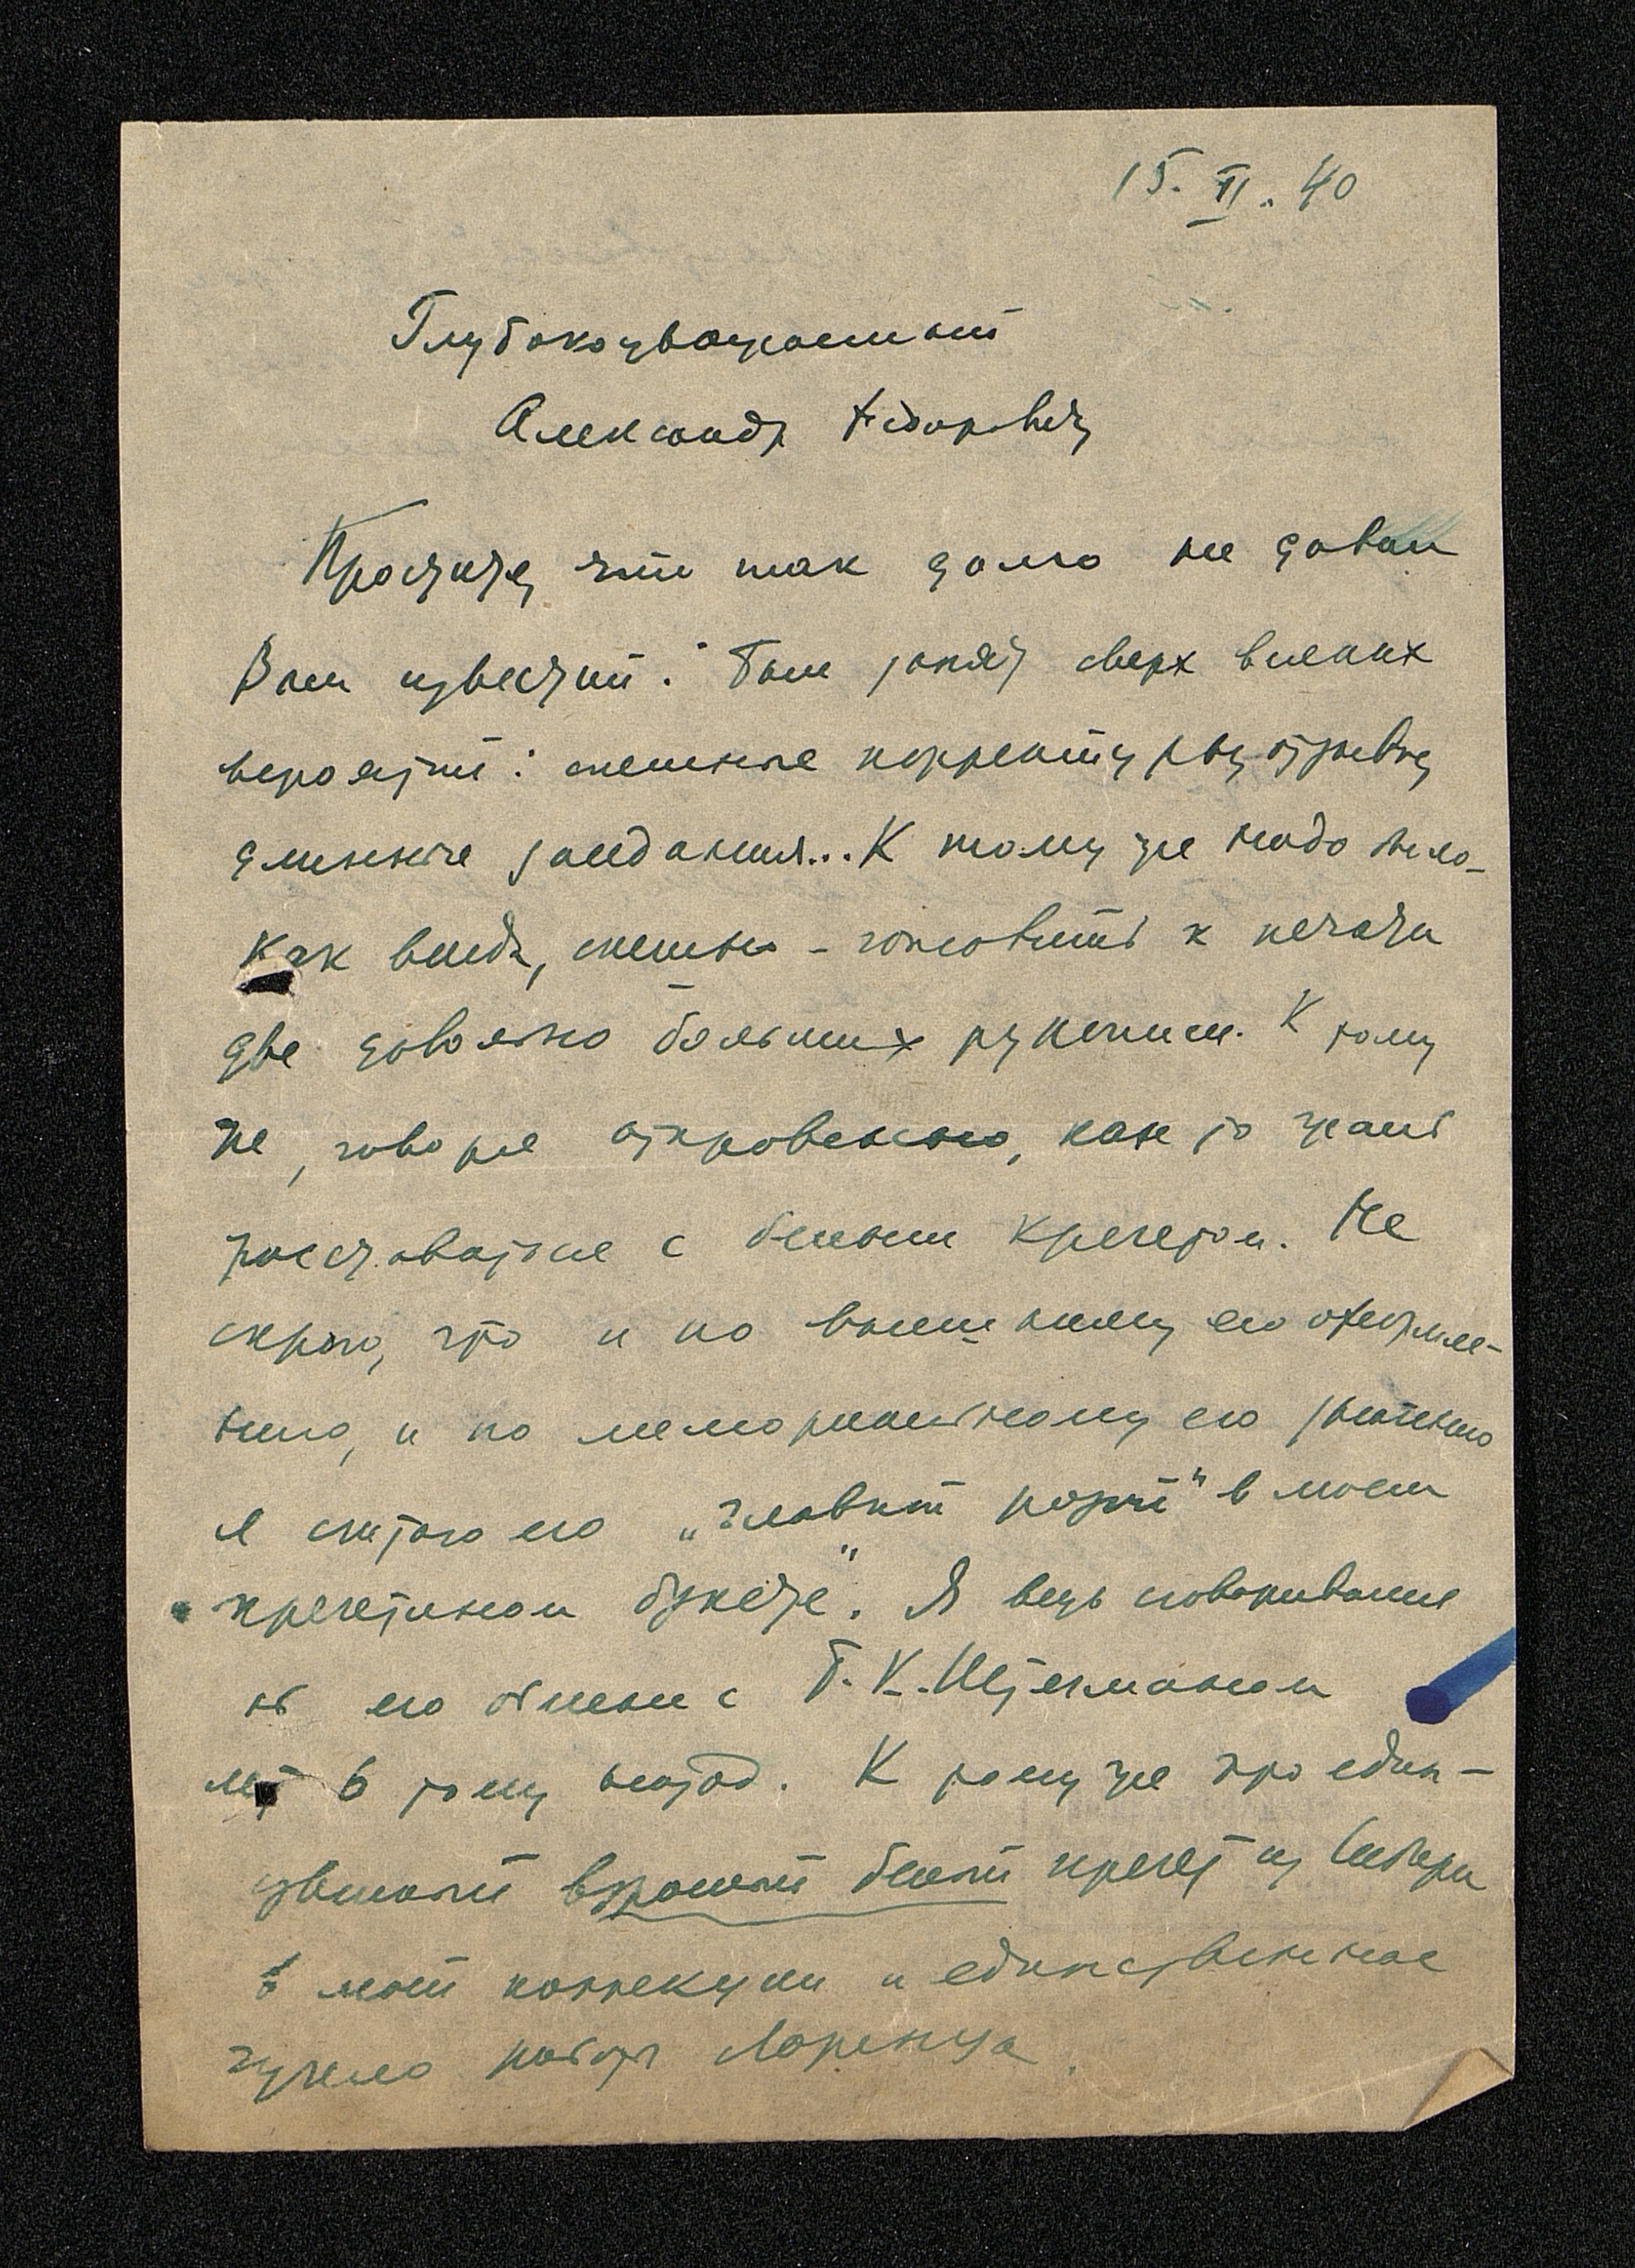 15. II. 40
Глубокоуважаемый
Александр Федорович
Простите, что так долго не давал
Вам известий: был занят сверх всяких
вероятий: спешные корректуры, отзывы,
длинные заседания... К тому же надо было -
как всегда, спешно - готовить к печати
две довольно больших рукописи. К тому
же, говоря откровенно, как то жаль
расставаться с белым кречетом. Не
скрою, что и по внешнему его оформле-
нию, и по мемориальному его значению
я считаю его „главной розой" в моем
„кречетином букете". Я ведь сговаривался
об его обмене с Б. К. Штегманом
лет 6 тому назад. К тому же это един-
ственный взрослый белый кречет из Сибири
в моей коллекции и единственное
чучело работы Лоренца.